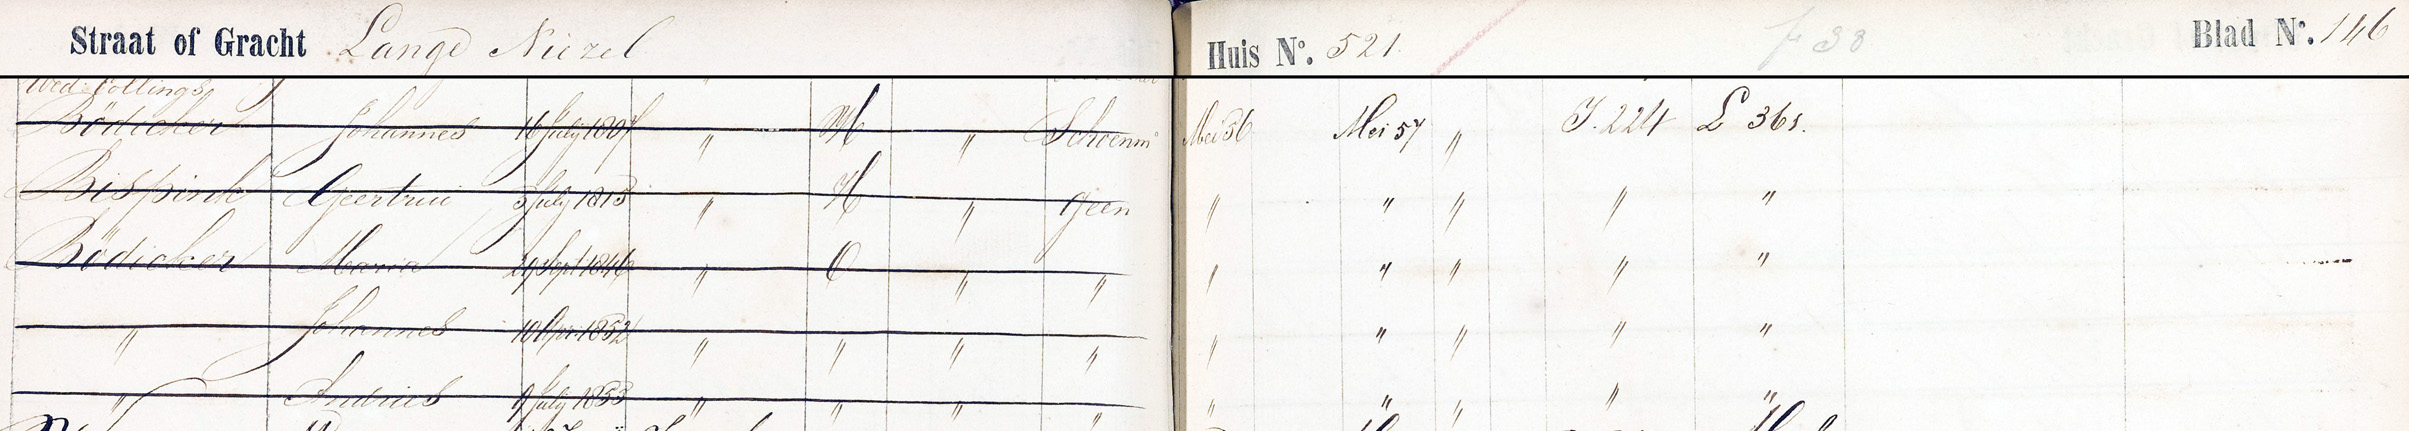 Straat of Gracht Lange Niezel Huis No. 521. Blad No. 146
Wed: Collings
Bödicker Johannes 16 July 1807 " H " Schoenm Mei 56 Mei 57 " J. 224 L 361.
Bispink Geertrui 3 July 1813 " H " geen " " " " "
Bödicker Maria 29 Sept 1846 " O " " " " " " "
" Johannes 10 Apr 1852 " " " " " " " " "
" Andries 9 July 1853 " " " " " " " " "